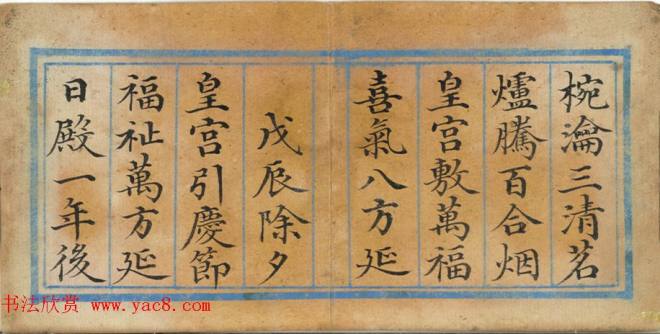 椀瀹三清茗
爐騰百合烟
皇宫敷萬福
喜氣八方延
戊辰除夕
皇宫引慶節
福祉萬方延
日殿一年後
书法欣赏 www.yac8.com